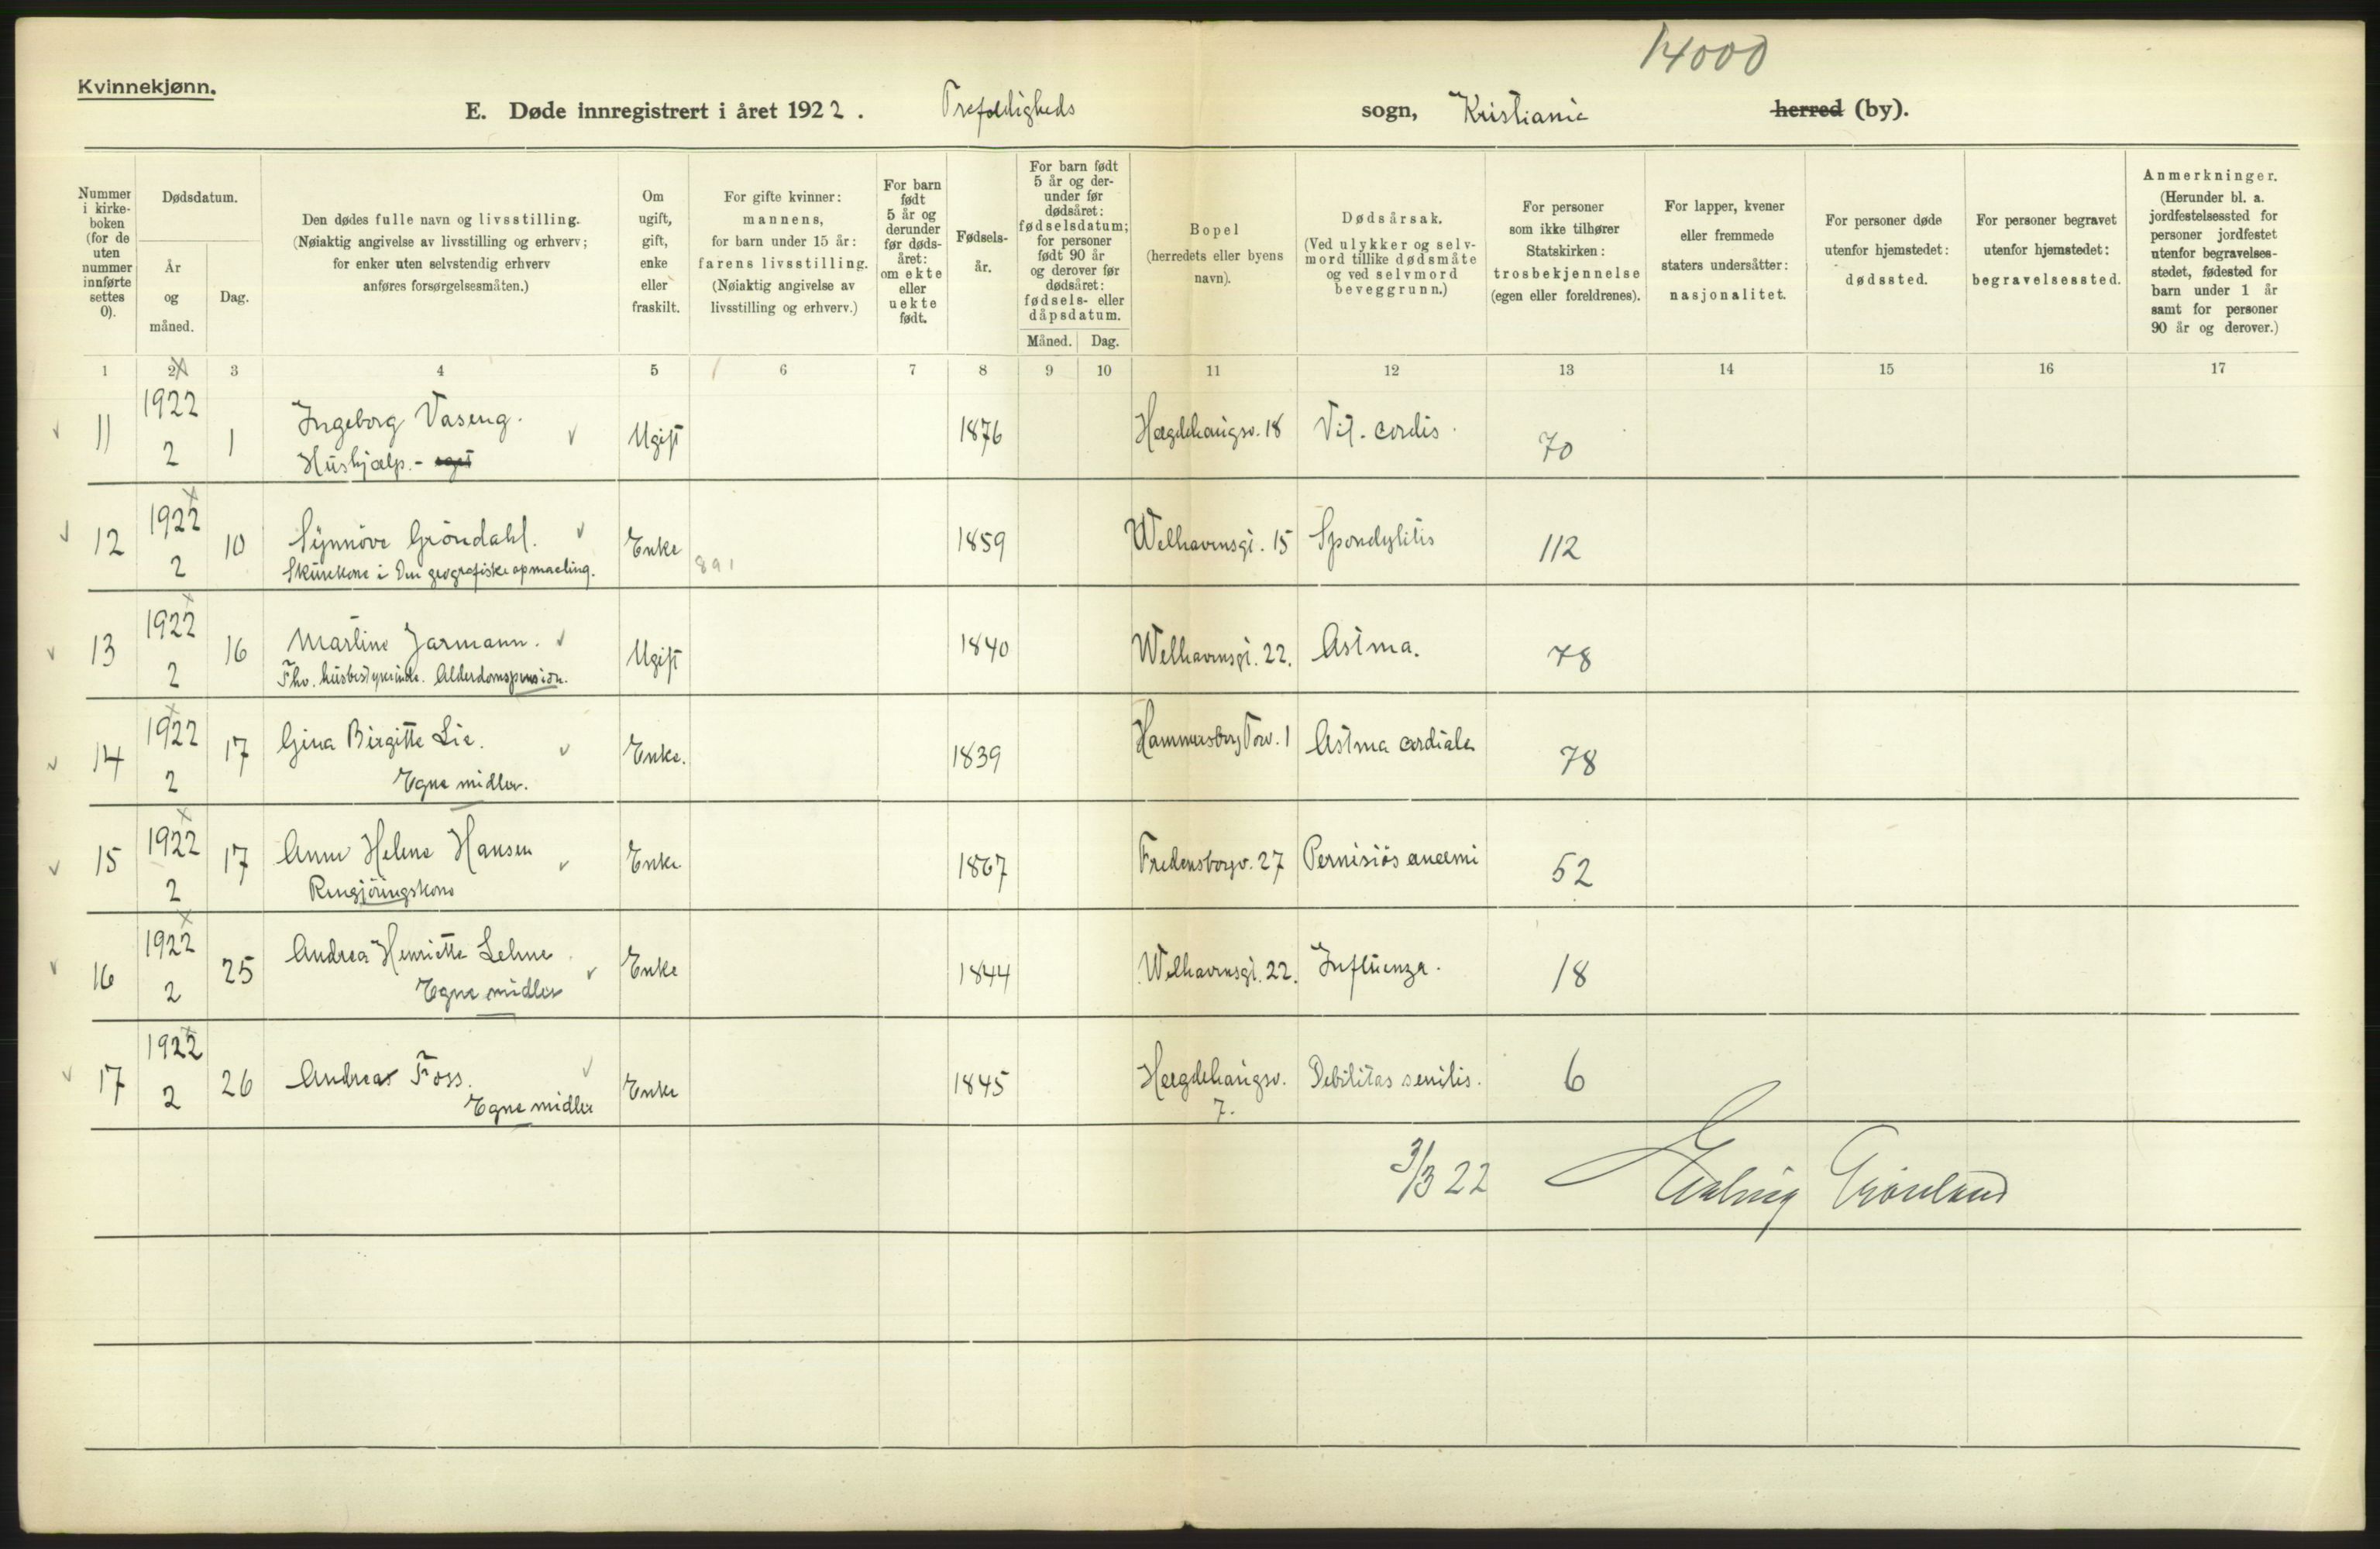 14000
Kvinnekjønn.
E. Døde innregistrert i året 1922. Trefoldigheds sogn, Kristiania herred (by).
Nummer i kirke-boken (for de uten nummer innførte settes 0).
Dødsdatum.
År og måned.
Dag.
Den dødes fulle navn og livsstilling.
(Nøiaktig angivelse av livsstilling og erhverv;
for enker uten selvstendig erhverv
anføres forsørgelsesmåten.)
Om ugift, gift, enke eller fraskilt.
For gifte kvinner:
mannens,
for barn under 15 år:
farens livsstilling.
(Nøiaktig angivelse av
livsstilling og erhverv.)
For barn født 5 år og derunder før døds-året: om ekte eller uekte født.
Fødsels-år.
For barn født 5 år og der-under før dødsåret: fødselsdatum; for personer født 90 år og derover før dødsåret: fødsels- eller dåpsdatum.
Måned. Dag.
Bopel
(herredets eller byens
navn).
Dødsårsak.
(Ved ulykker og selv-
mord tillike dødsmåte
og ved selvmord
beveggrunn.)
For personer
som ikke tilhører
Statskirken:
trosbekjennelse
(egen eller foreldrenes).
For lapper, kvener
eller fremmede
staters undersåtter:
nasjonalitet.
For personer døde
utenfor hjemstedet:
dødssted.
For personer begravet
utenfor hjemstedet:
begravelsessted.
Anmerkninger.
(Herunder bl. a.
jordfestelsessted for
personer jordfestet
utenfor begravelses-
stedet, fødested for
barn under 1 år
samt for personer
90 år og derover.)
1 2 3 4 5 6 7 8 9 10 11 12 13 14 15 16 17
11 1922 2 1 Ingeborg Vaseng. Ugift 1876 Hægdehaugsv. 18 Vit. cordis. 70
Hushjælp. -
12 1922 2 10 Synnöve Gröndahl. Enke 891 1859 Welhavensgt. 15 Spondylitis 112
Skurekone i Den geografiske opmaaling.
13 1922 2 16 Martine Jarmann. Ugift 1840 Welhavensgt. 22. Astma. 78
Fhv. husbestyrerinde. Alderdomspension.
14 1922 2 17 Gina Birgitte Lie. Enke. 1839 Hammersborg Torv. 1 Astma cordiale 78
Egne midler.
15 1922 2 17 Anne Helene Hansen Enke. 1867 Fredensborgv. 27 Pernisiös anæmi 52
Rengjöringskone
16 1922 2 25 Andrea Henriette Lehne Enke 1844 Welhavensgt. 22. Influenza. 18
Egne midler
17 1922 2 26 Andrea Foss. Enke 1845 Hægdehaugsv. 7. Debilitas senilis. 6
Egne midler
3/3 22 Erling Grönland